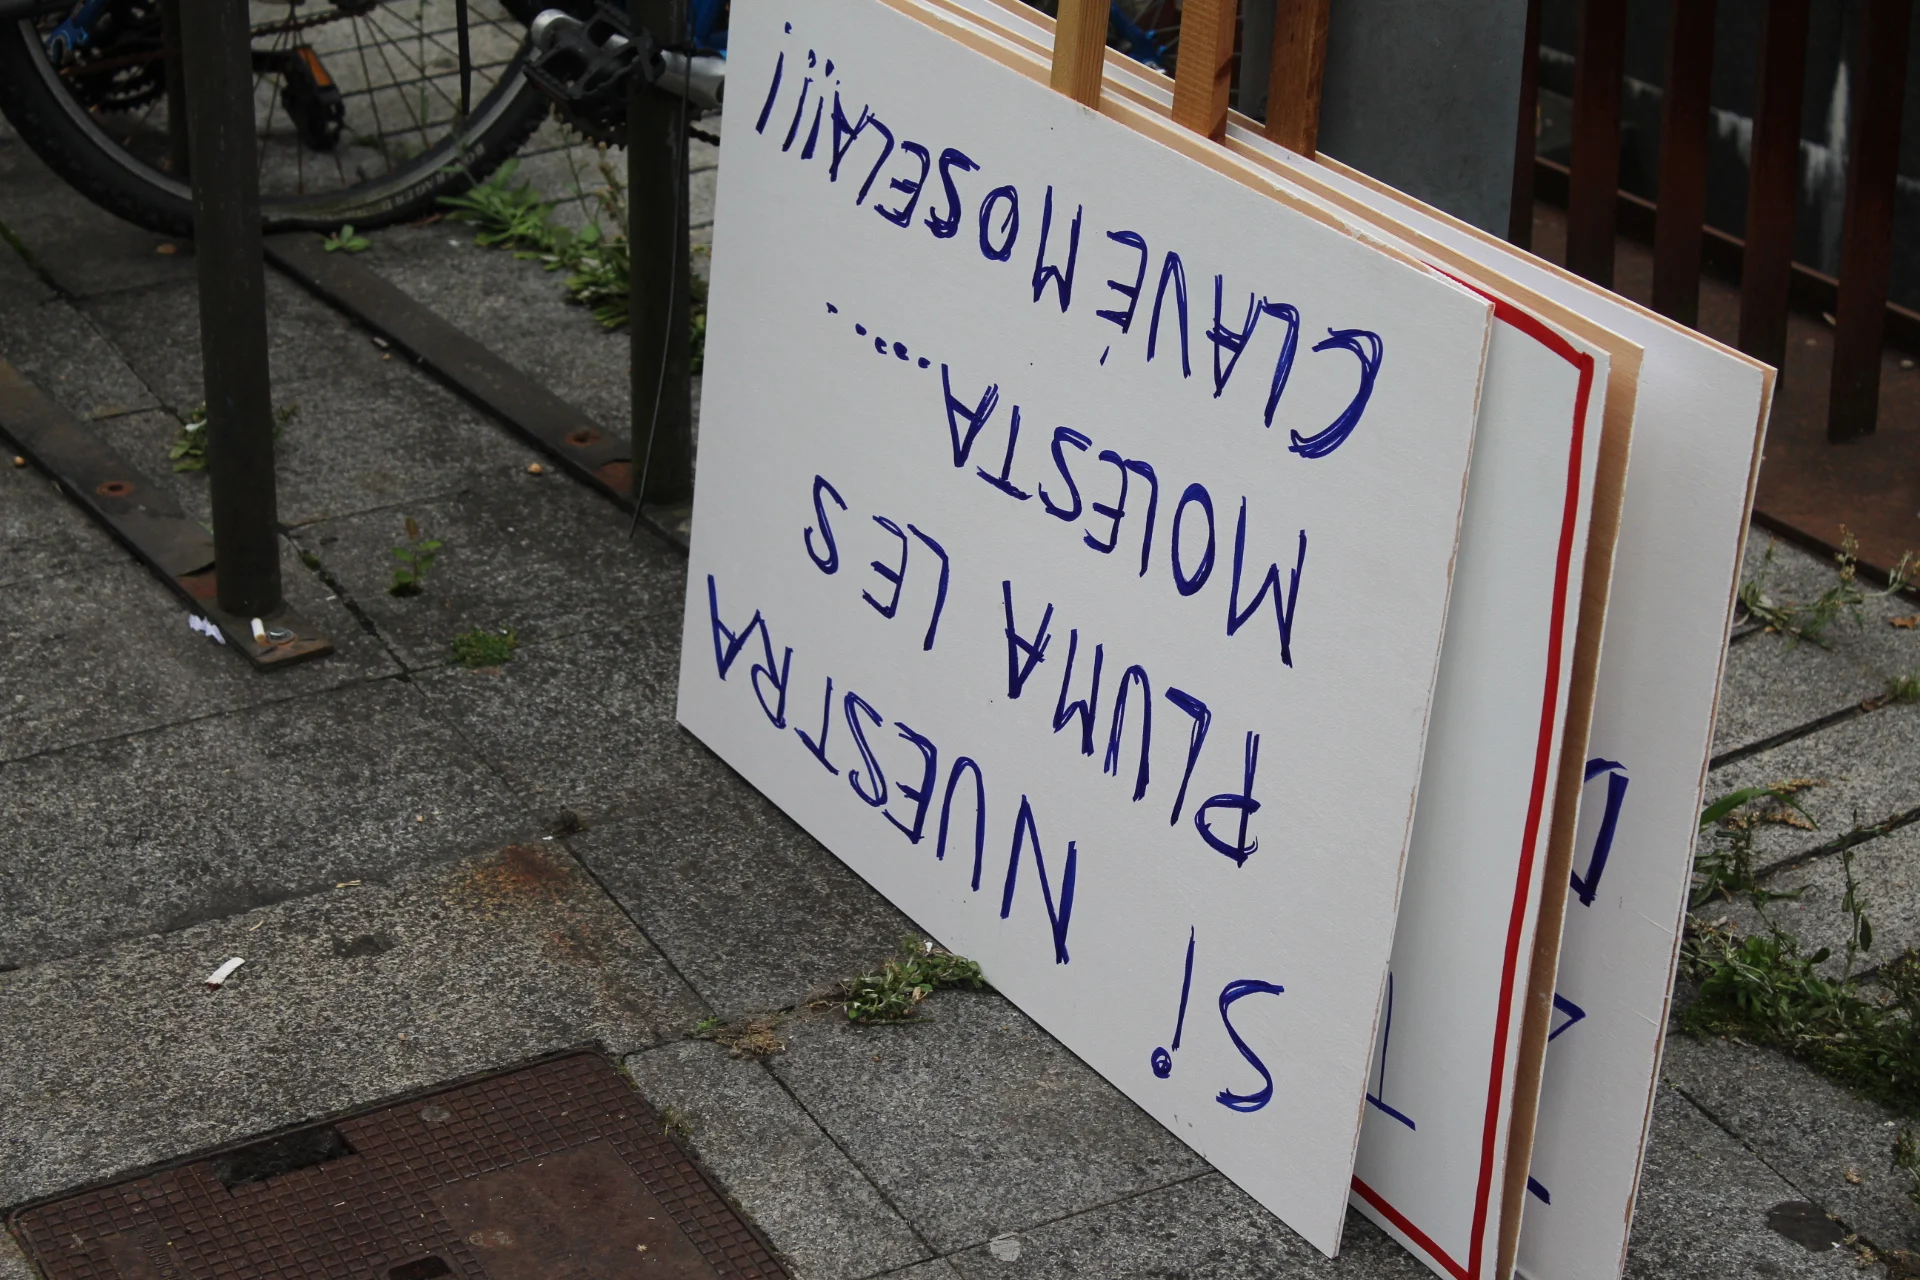 SI NUESTRA
PLUMA LES
MOLESTA.....
CLAVÉMOSELA!!!